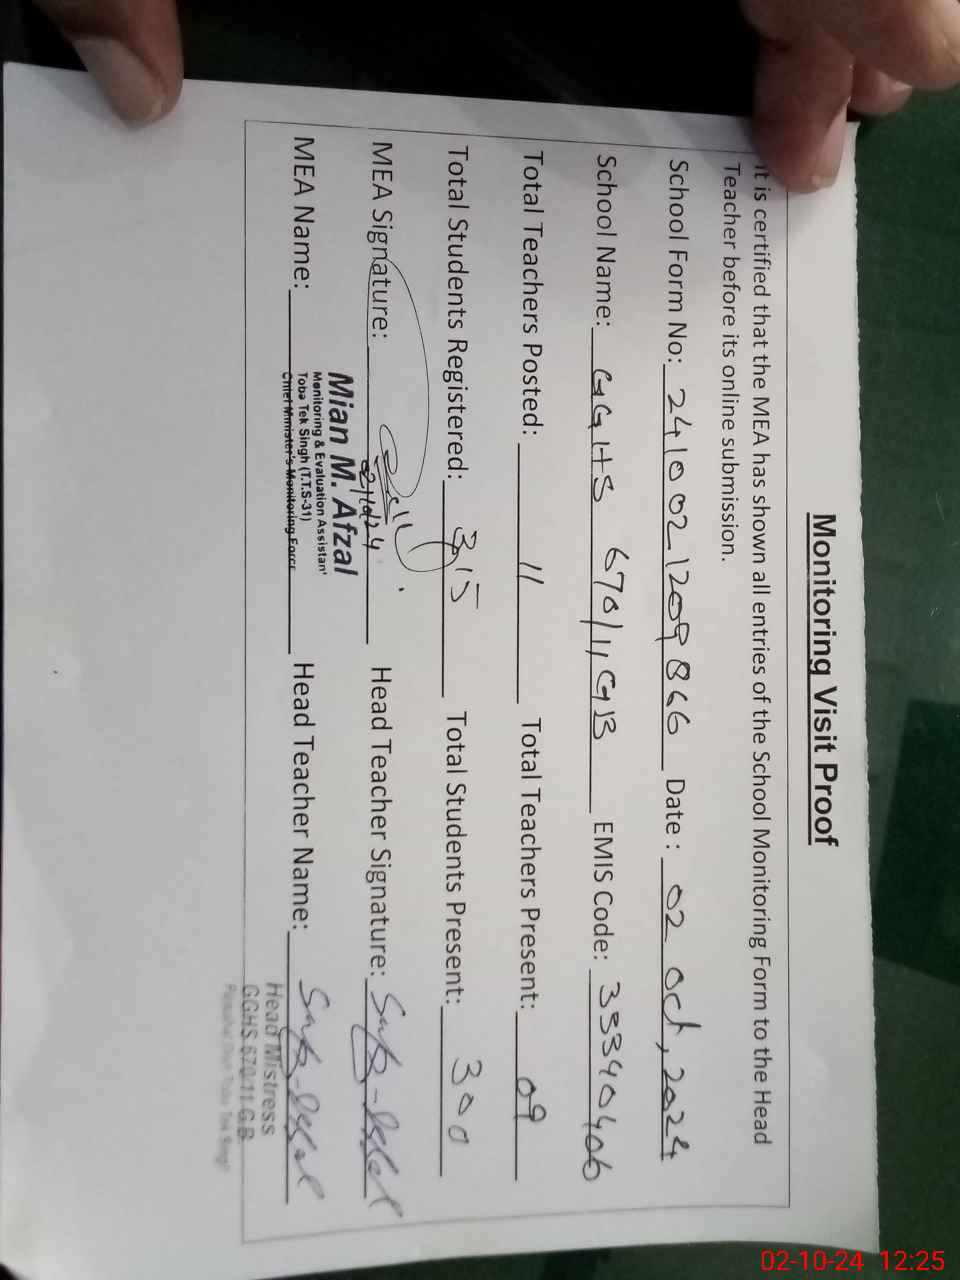 Monitoring Visit Proof
It is certified that the MEA has shown all entries of the School Monitoring Form to the Head
Teacher before its online submission.
School Form No: 2410021209866 Date : 02 Oct, 2024
School Name: GGHS 670/11 GB EMIS Code: 33340406
Total Teachers Posted: 11 Total Teachers Present: 09
Total Students Registered: 315 Total Students Present: 300
MEA Signature: 02/10/24 Head Teacher Signature:
MEA Name: Mian M. Afzal Head Teacher Name:
Monitoring & Evaluation Assistan'
Toba Tek Singh (T.T.S-31)
Chief Minister's Monitoring Force
Head Mistress
GGHS 670/11 G.B
Toba Tek Singh
02-10-24 12:25